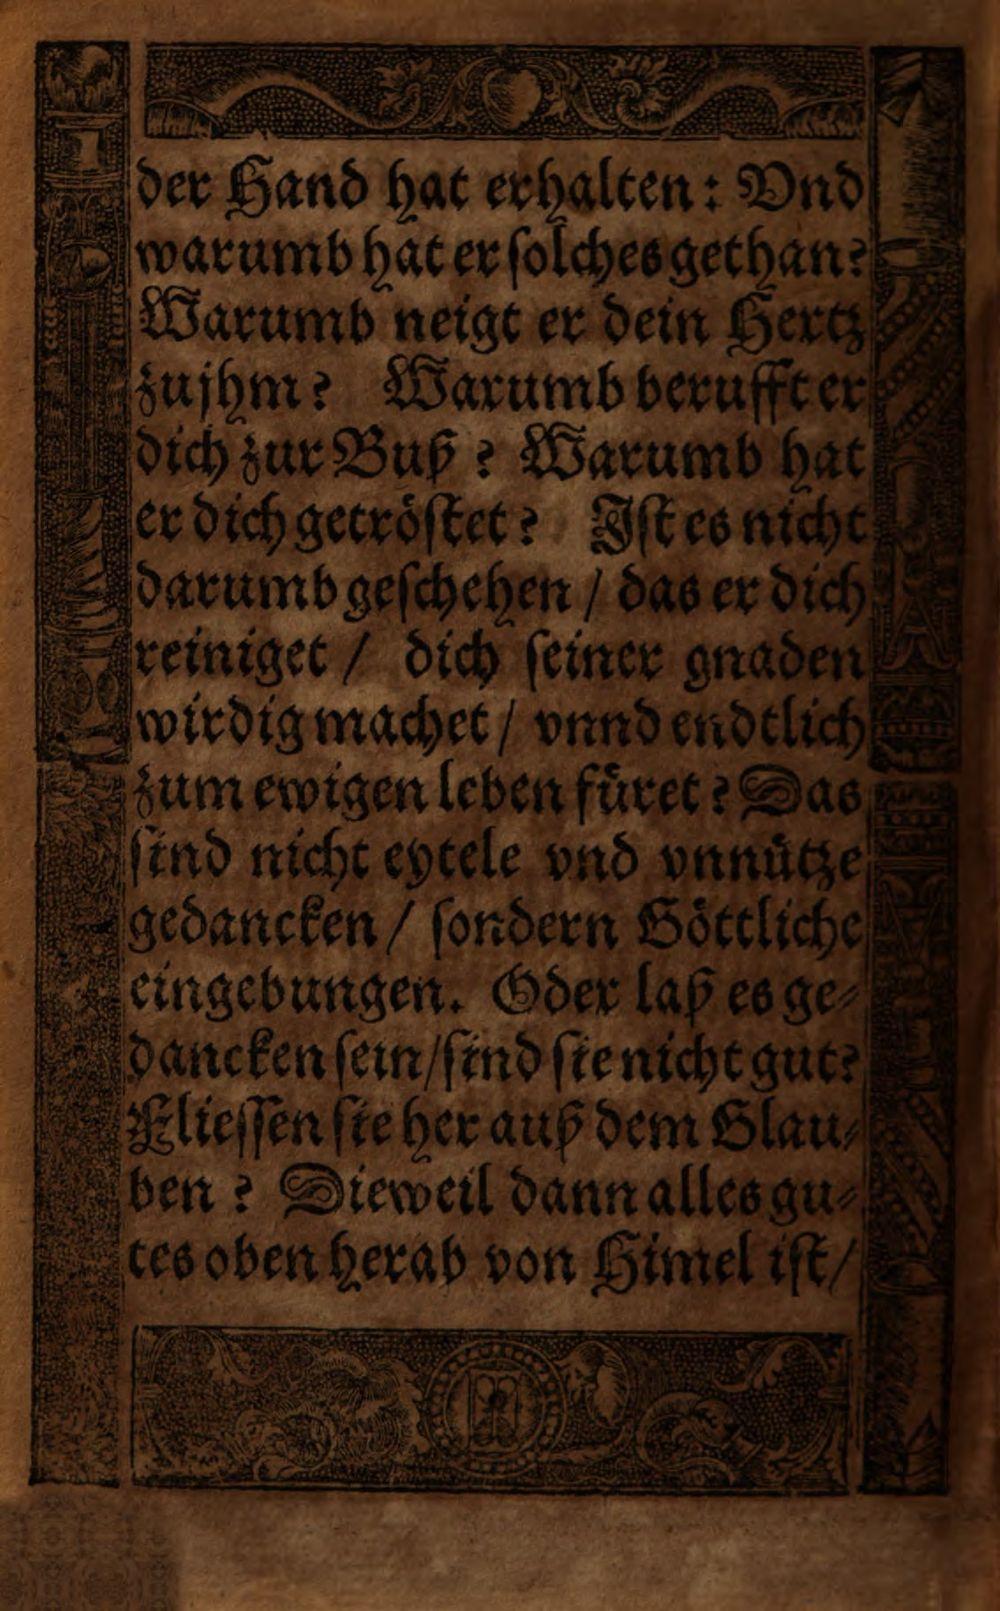 der Hand hat erhalten: Vnd
warumb hat er ſolches gethan?
Warumb neigt er dein Hertz
zu jhm? Warumb berufft er
dich zur Buß? Warumb hat
er dich getröſtet? Iſt es nicht
darumb geſchehen / das er dich
reiniget / dich ſeiner gnaden
wirdig machet / vnnd endtlich
zum ewigen leben füret? Das
ſind nicht eytele vnd vnnütze
gedancken / ſondern Göttliche
eingebungen. Oder laß es ge⸗
dancken ſein / ſind ſie nicht gut?
Flieſſen ſie her auß dem Glau⸗
ben? Dieweil dann alles gu⸗
tes oben herab von Himel iſt /